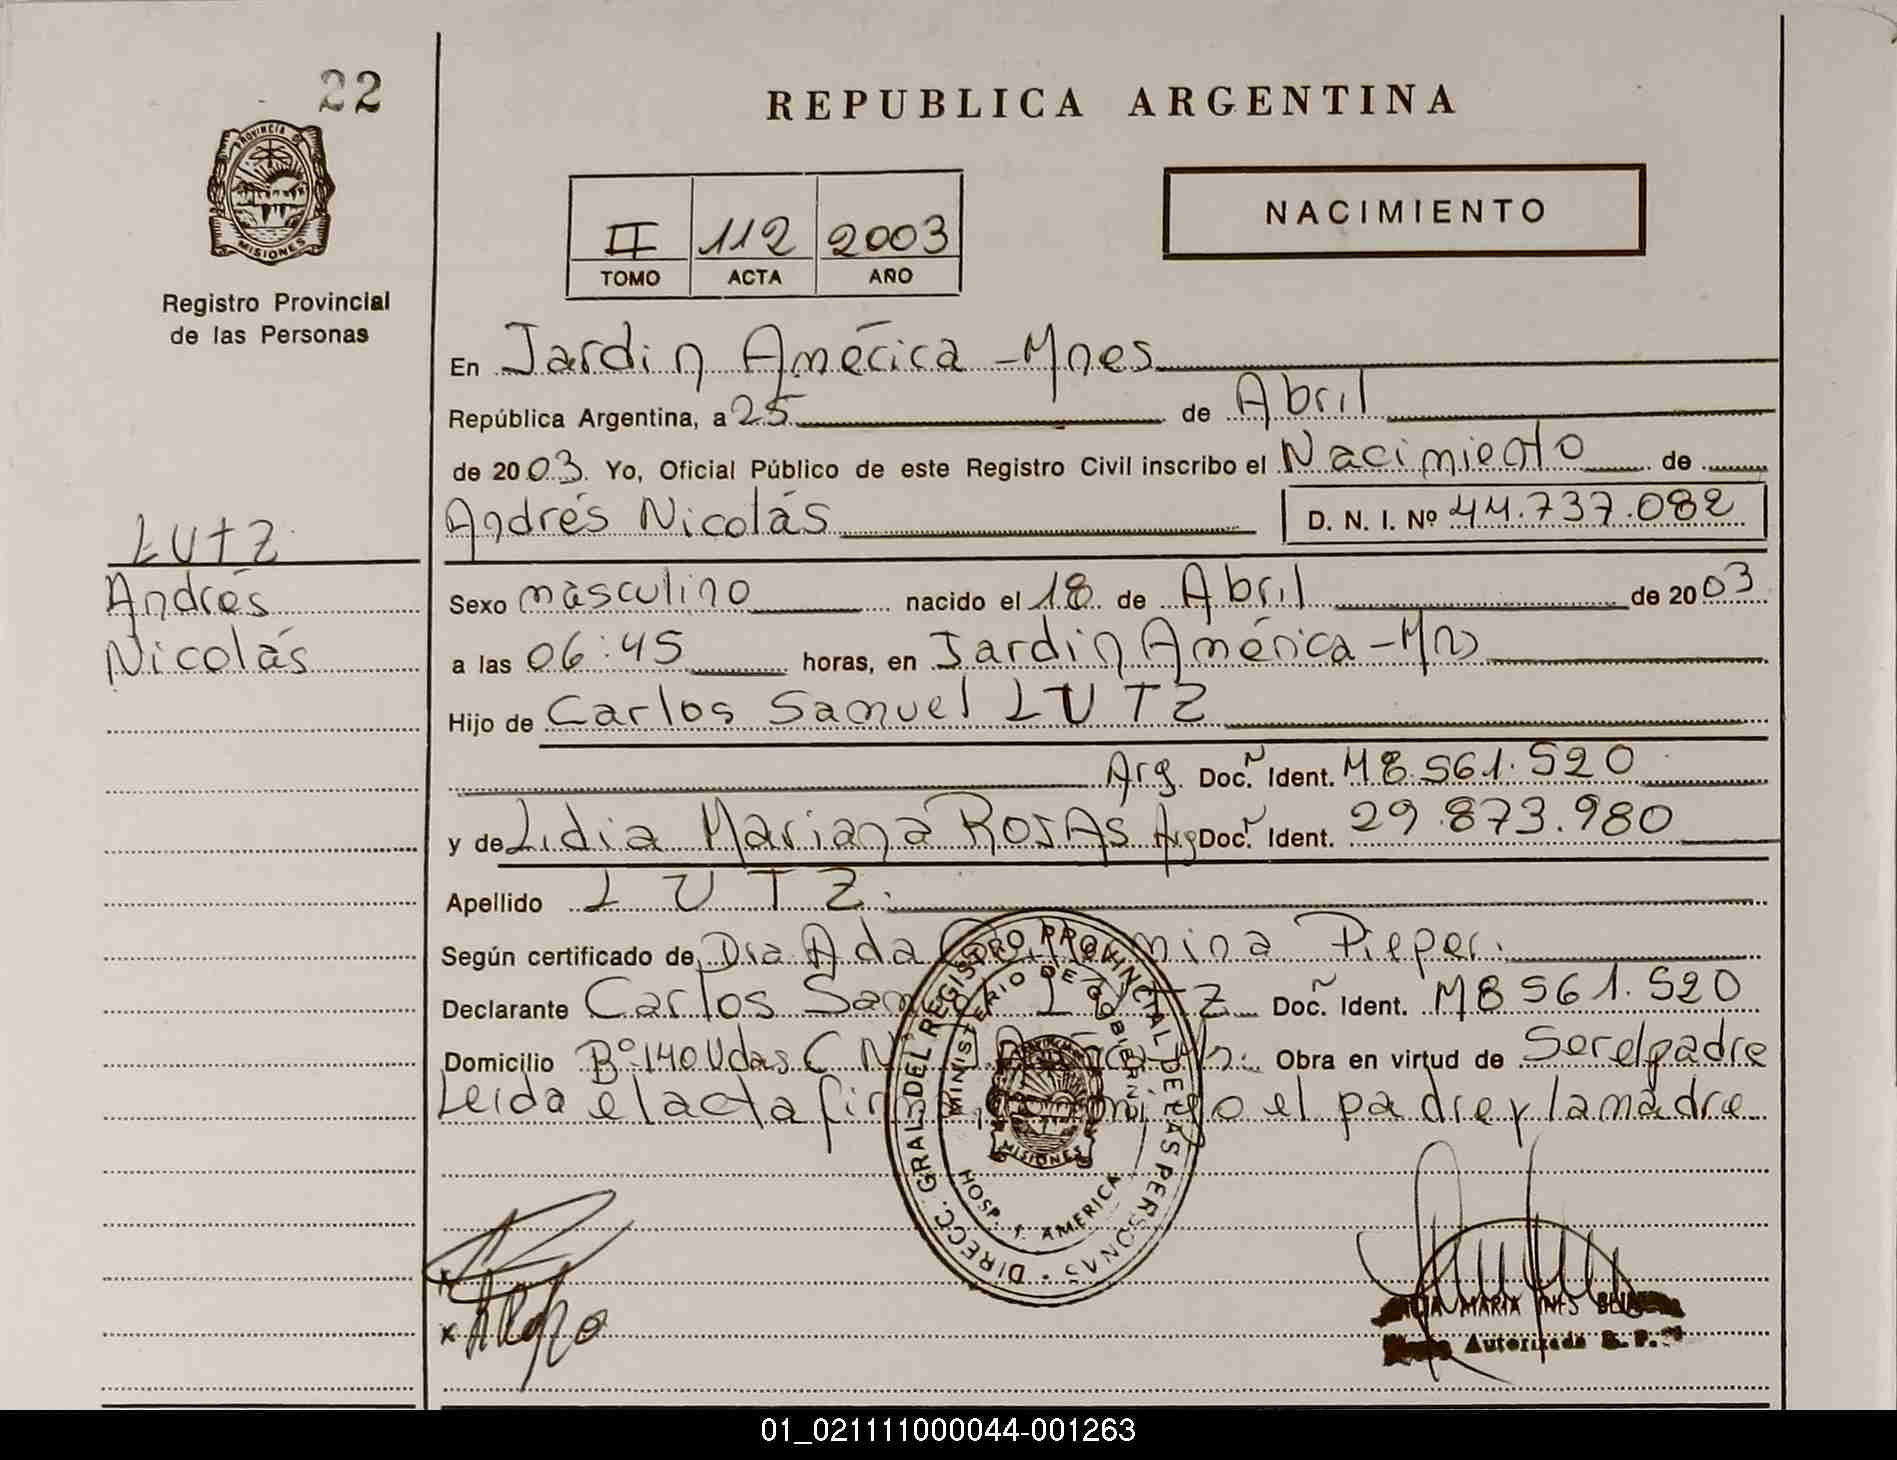 22
REPUBLICA ARGENTINA
PROVINCIA DE
MISIONES
Registro Provincial
de las Personas
II 112 2003
TOMO ACTA AÑO
NACIMIENTO
En Jardin América - Mnes
República Argentina, a 25 de Abril
de 2003. Yo, Oficial Público de este Registro Civil inscribo el Nacimiento de
Andrés Nicolás D. N. I. Nº 44.737.082
LUTZ
Andrés
Nicolás
Sexo masculino nacido el 18 de Abril de 2003
a las 06:45 horas, en Jardin América - Mns
Hijo de Carlos Samuel LUTZ
Arg. Doc. Ident. M8.561.520
y de Lidia Mariana ROJAS Arg Doc. Ident. 29.873.980
Apellido LUTZ.
Según certificado de Dra Ada Pieper.
Declarante Carlos LUTZ Doc. Ident. M8561.520
Domicilio Bº 140 Vdas. C.N. Obra en virtud de Ser el padre
Leida el acta el padre y la madre
DIRECC. GRAL. DEL REGISTRO PROVINCIAL DE LAS PERSONAS
MINISTERIO DE GOBIERNO
MISIONES
HOSP. J. AMERICA
MARIA INES
Autorizada R. P.
01_021111000044-001263